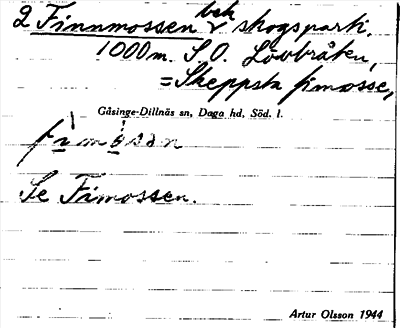 2 Finnmossen beh skogsparti,
1000 m. S O. Lövbråten,
= Skeppsta fimosse,
Gåsinge-Dillnäs sn, Daga hd, Söd. l.
Se Fimossen.
Artur Olsson 1944